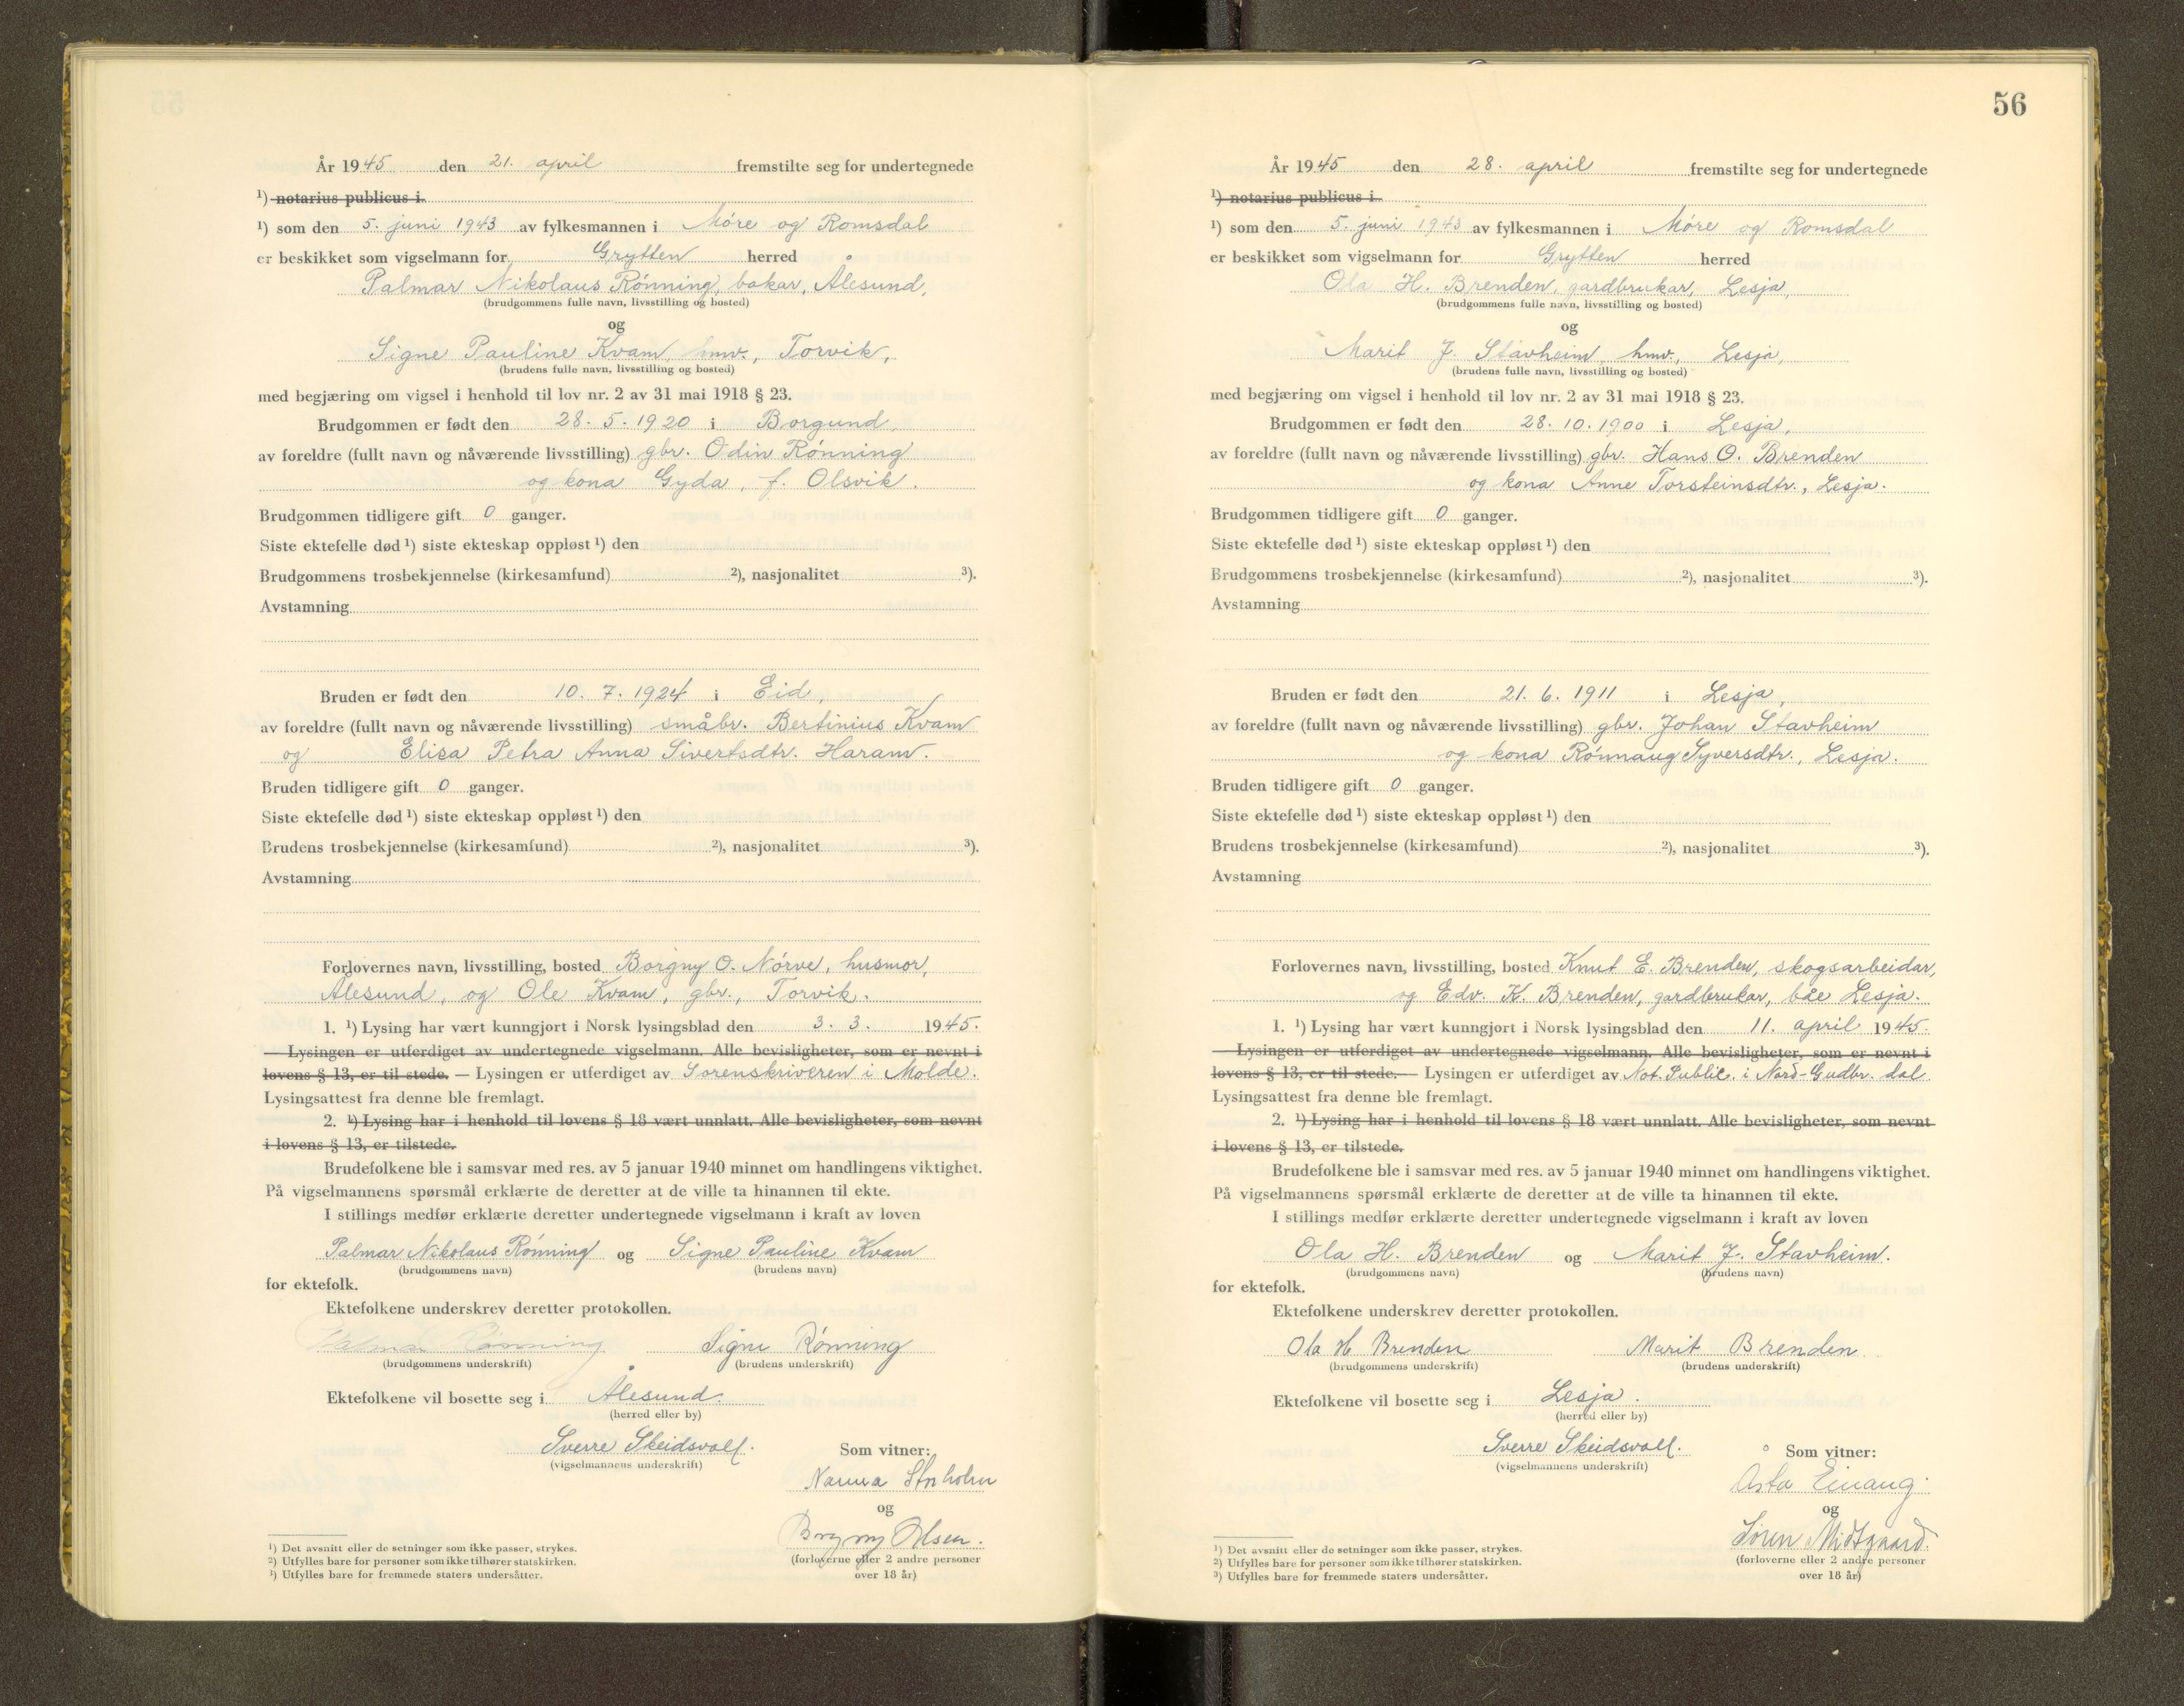 År 1945 den 21. april fremstilte seg for undertegnede
¹) notarius publicus i
¹) som den 5. juni 1943 av fylkesmannen i Møre og Romsdal
er beskikket som vigselmann for Grytten herred
Palmar Nikolaus Rønning, bakar, Ålesund,
(brudgommens fulle navn, livsstilling og bosted)
og
Signe Pauline Kvam, hmv., Torvik,
(brudens fulle navn, livsstilling og bosted)
med begjæring om vigsel i henhold til lov nr. 2 av 31 mai 1918 § 23.
Brudgommen er født den 28. 5. 1920 i Borgund,
av foreldre (fullt navn og nåværende livsstilling) gbr. Odin Rønning
og kona Gyda, f. Olsvik.
Brudgommen tidligere gift 0 ganger.
Siste ektefelle død ¹) siste ekteskap oppløst ¹) den
Brudgommens trosbekjennelse (kirkesamfund) ²), nasjonalitet ³).
Avstamning
Bruden er født den 10. 7. 1924 i Eid,
av foreldre (fullt navn og nåværende livsstilling) småbr. Bertinius Kvam
og Elisa Petra Anna Sivertsdtr. Haram.
Bruden tidligere gift 0 ganger.
Siste ektefelle død ¹) siste ekteskap oppløst ¹) den
Brudens trosbekjennelse (kirkesamfund) ²), nasjonalitet ³).
Avstamning
Forlovernes navn, livsstilling, bosted Borgny O. Nørve, husmor,
Ålesund, og Ole Kvam, gbr., Torvik.
1. ¹) Lysing har vært kunngjort i Norsk lysingsblad den 3. 3. 1945.
— Lysingen er utferdiget av undertegnede vigselmann. Alle bevisligheter, som er nevnt i
lovens § 13, er til stede. — Lysingen er utferdiget av Sorenskriveren i Molde.
Lysingsattest fra denne ble fremlagt.
2. ¹) Lysing har i henhold til lovens § 18 vært unnlatt. Alle bevisligheter, som nevnt
i lovens § 13, er tilstede.
Brudefolkene ble i samsvar med res. av 5 januar 1940 minnet om handlingens viktighet.
På vigselmannens spørsmål erklærte de deretter at de ville ta hinannen til ekte.
I stillings medfør erklærte deretter undertegnede vigselmann i kraft av loven
Palmar Nikolaus Rønning og Signe Pauline Kvam
(brudgommens navn) (brudens navn)
for ektefolk.
Ektefolkene underskrev deretter protokollen.
Palmar Rønning Signe Rønning
(brudgommens underskrift) (brudens underskrift)
Ektefolkene vil bosette seg i Ålesund.
(herred eller by)
Sverre Skeidsvoll.
(vigselmannens underskrift)
Som vitner:
Nanna Storholm
og
Borgny Olsen.
(forloverne eller 2 andre personer
over 18 år)
¹) Det avsnitt eller de setninger som ikke passer, strykes.
²) Utfylles bare for personer som ikke tilhører statskirken.
³) Utfylles bare for fremmede staters undersåtter.
56
År 1945 den 28. april fremstilte seg for undertegnede
¹) notarius publicus i
¹) som den 5. juni 1943 av fylkesmannen i Møre og Romsdal
er beskikket som vigselmann for Grytten herred
Ola H. Brenden, gardbrukar, Lesja,
(brudgommens fulle navn, livsstilling og bosted)
og
Marit J. Stavheim, hmv., Lesja,
(brudens fulle navn, livsstilling og bosted)
med begjæring om vigsel i henhold til lov nr. 2 av 31 mai 1918 § 23.
Brudgommen er født den 28. 10. 1900 i Lesja,
av foreldre (fullt navn og nåværende livsstilling) gbr. Hans O. Brenden
og kona Anne Torsteinsdtr., Lesja.
Brudgommen tidligere gift 0 ganger.
Siste ektefelle død ¹) siste ekteskap oppløst ¹) den
Brudgommens trosbekjennelse (kirkesamfund) ²), nasjonalitet ³).
Avstamning
Bruden er født den 21. 6. 1911 i Lesja,
av foreldre (fullt navn og nåværende livsstilling) gbr. Johan Stavheim
og kona Rønnaug Syversdtr., Lesja.
Bruden tidligere gift 0 ganger.
Siste ektefelle død ¹) siste ekteskap oppløst ¹) den
Brudens trosbekjennelse (kirkesamfund) ²), nasjonalitet ³).
Avstamning
Forlovernes navn, livsstilling, bosted Knut E. Brenden, skogsarbeidar,
og Edv. K. Brenden, gardbrukar, båe Lesja.
1. ¹) Lysing har vært kunngjort i Norsk lysingsblad den 11. april 1945.
— Lysingen er utferdiget av undertegnede vigselmann. Alle bevisligheter, som er nevnt i
lovens § 13, er til stede. — Lysingen er utferdiget av Not. Public. i Nord-Gudbr. dal
Lysingsattest fra denne ble fremlagt.
2. ¹) Lysing har i henhold til lovens § 18 vært unnlatt. Alle bevisligheter, som nevnt
i lovens § 13, er tilstede.
Brudefolkene ble i samsvar med res. av 5 januar 1940 minnet om handlingens viktighet.
På vigselmannens spørsmål erklærte de deretter at de ville ta hinannen til ekte.
I stillings medfør erklærte deretter undertegnede vigselmann i kraft av loven
Ola H. Brenden og Marit J. Stavheim.
(brudgommens navn) (brudens navn)
for ektefolk.
Ektefolkene underskrev deretter protokollen.
Ola H Brenden Marit Brenden
(brudgommens underskrift) (brudens underskrift)
Ektefolkene vil bosette seg i Lesja.
(herred eller by)
Sverre Skeidsvoll.
(vigselmannens underskrift)
Som vitner:
Asta Einang.
og
Søren Midtgaard.
(forloverne eller 2 andre personer
over 18 år)
¹) Det avsnitt eller de setninger som ikke passer, strykes.
²) Utfylles bare for personer som ikke tilhører statskirken.
³) Utfylles bare for fremmede staters undersåtter.